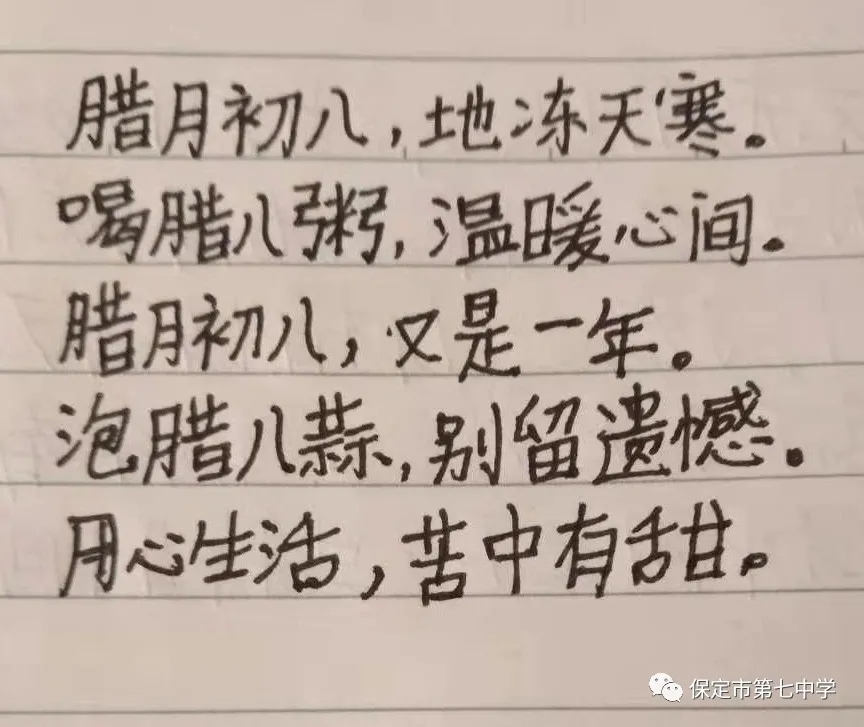 腊月初八,地冻天寒。
喝腊八粥,温暖心间。
腊月初八,又是一年。
泡腊八蒜,别留遗憾。
用心生活,苦中有甜。
保定市第七中学